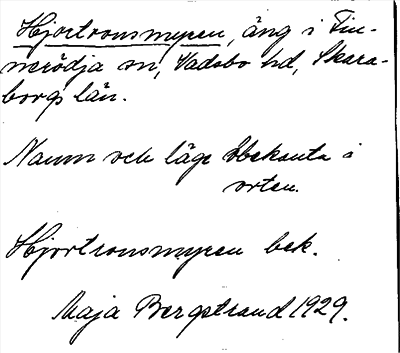 Hjortronsmyren, äng i Tin-
merödja sn, Vadsbo hd, Skara-
borgs län.
Namn och läge obekanta i
orten.
Hjortronsmyren bek.
Maja Bergstrand 1929.